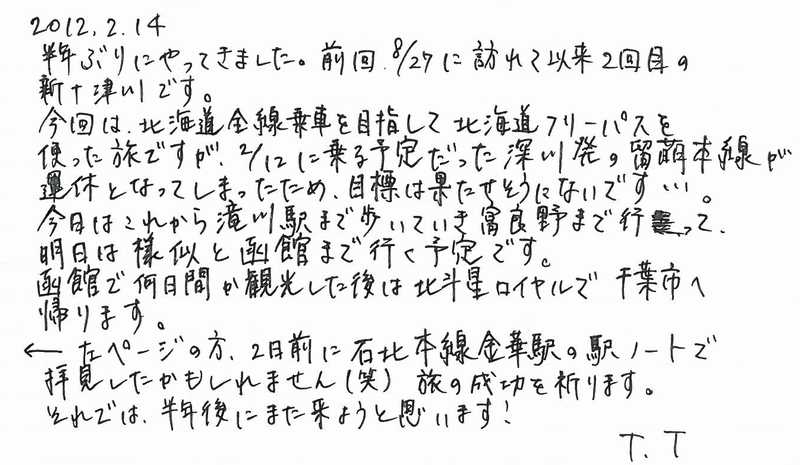 2012.2.14
半年ぶりにやってきました。前回、8/27に訪れて以来2回目の
新十津川です。
今回は、北海道全線乗車を目指して北海道フリーパスを
使った旅ですが、2/12に乗る予定だった深川発の留萌本線が
運休となってしまったため、目標は果たせそうにないです…。
今日はこれから滝川駅まで歩いていき富良野まで行って、
明日は様似と函館まで行く予定です。
函館で何日間か観光した後は北斗星ロイヤルで千葉市へ
帰ります。
← 左ページの方、2日前に石北本線金華駅の駅ノートで
拝見したかもしれません(笑) 旅の成功を祈ります。
それでは、半年後にまた来ようと思います!
T.T